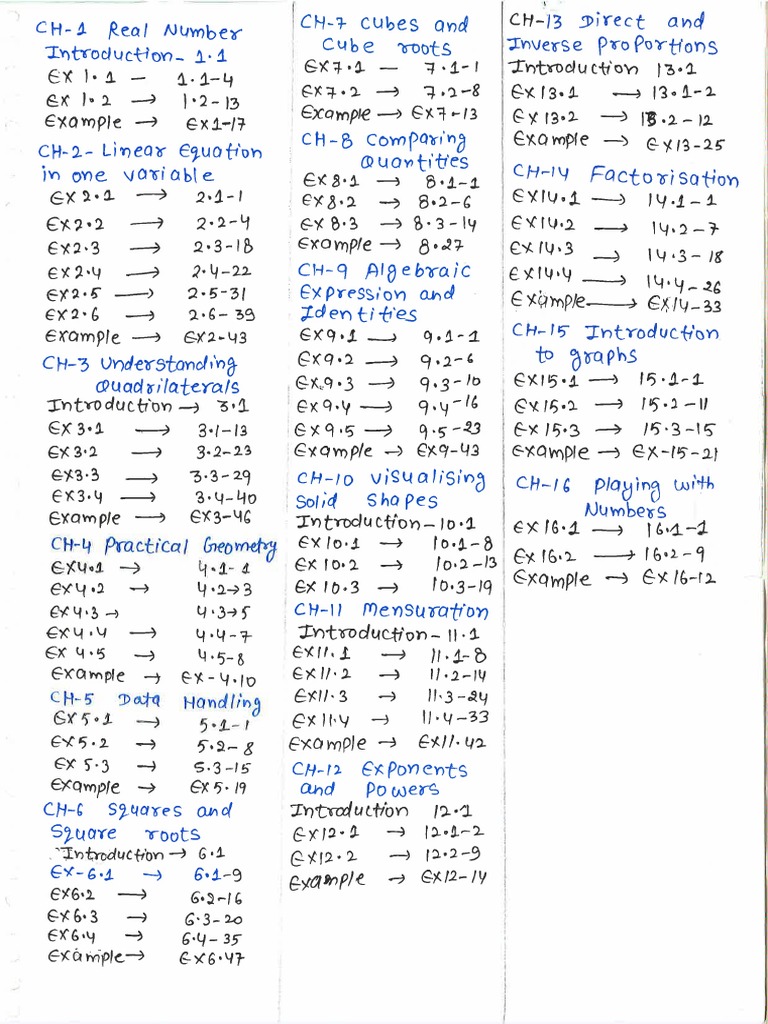 CH-1 Real Number
Introduction- 1.1
EX 1.1 — 1.1-4
EX 1.2 → 1.2-13
Example → EX1-17
CH-2- Linear Equation
in one variable
EX 2.1 → 2.1-1
EX2.2 → 2.2-4
EX2.3 → 2.3-18
EX2.4 → 2.4-22
EX2.5 → 2.5-31
EX2.6 → 2.6-39
Example → EX2-43
CH-3 Understanding
Quadrilaterals
Introduction → 3.1
EX 3.1 → 3.1-13
EX3.2 → 3.2-23
EX3.3 → 3.3-29
EX3.4 → 3.4-40
Example → EX3-46
CH-4 Practical Geometry
EX4.1 → 4.1-1
EX4.2 → 4.2→3
EX4.3→ 4.3→5
EX4.4 → 4.4-7
EX 4.5 → 4.5-8
Example → EX-4.10
CH-5 Data Handling
EX5.1 → 5.1-1
EX5.2 → 5.2-8
EX 5.3 → 5.3-15
Example → EX5.19
CH-6 Squares and
Square roots
Introduction→ 6.1
EX-6.1 → 6.1-9
EX6.2 → 6.2-16
EX6.3 → 6.3-20
EX6.4 → 6.4-35
Example→ EX6.47
CH-7 Cubes and
Cube roots
EX7.1 — 7.1-1
EX7.2 → 7.2-8
Example → EX7-13
CH-8 Comparing
Quantities
EX8.1 → 8.1-1
EX8.2 → 8.2-6
EX8.3 → 8.3-14
Example → 8.27
CH-9 Algebraic
Expression and
Identities
EX9.1 → 9.1-1
EX9.2 → 9.2-6
EX9.3 → 9.3-10
EX9.4 → 9.4-16
EX9.5 → 9.5-23
Example → EX9-43
CH-10 Visualising
Solid Shapes
Introduction-10.1
EX10.1 → 10.1-8
EX10.2 → 10.2-13
EX10.3 → 10.3-19
CH-11 Mensuration
Introduction-11.1
EX11.1 → 11.1-8
EX11.2 → 11.2-14
EX11.3 → 11.3-24
EX11.4 → 11.4-33
Example → EX11.42
CH-12 Exponents
and Powers
Introduction 12.1
EX12.1 → 12.1-2
EX12.2 → 12.2-9
Example → EX12-14
CH-13 Direct and
Inverse Proportions
Introduction 13.1
EX13.1 → 13.1-2
EX13.2 → 13.2-12
Example → EX13-25
CH-14 Factorisation
EX14.1 → 14.1-1
EX14.2 → 14.2-7
EX14.3 → 14.3-18
EX14.4 → 14.4-26
Example → EX14-33
CH-15 Introduction
to graphs
EX15.1 → 15.1-1
EX15.2 → 15.2-11
EX15.3 → 15.3-15
Example → EX-15-21
CH-16 Playing with
Numbers
EX16.1 → 16.1-1
EX16.2 → 16.2-9
Example → EX16-12